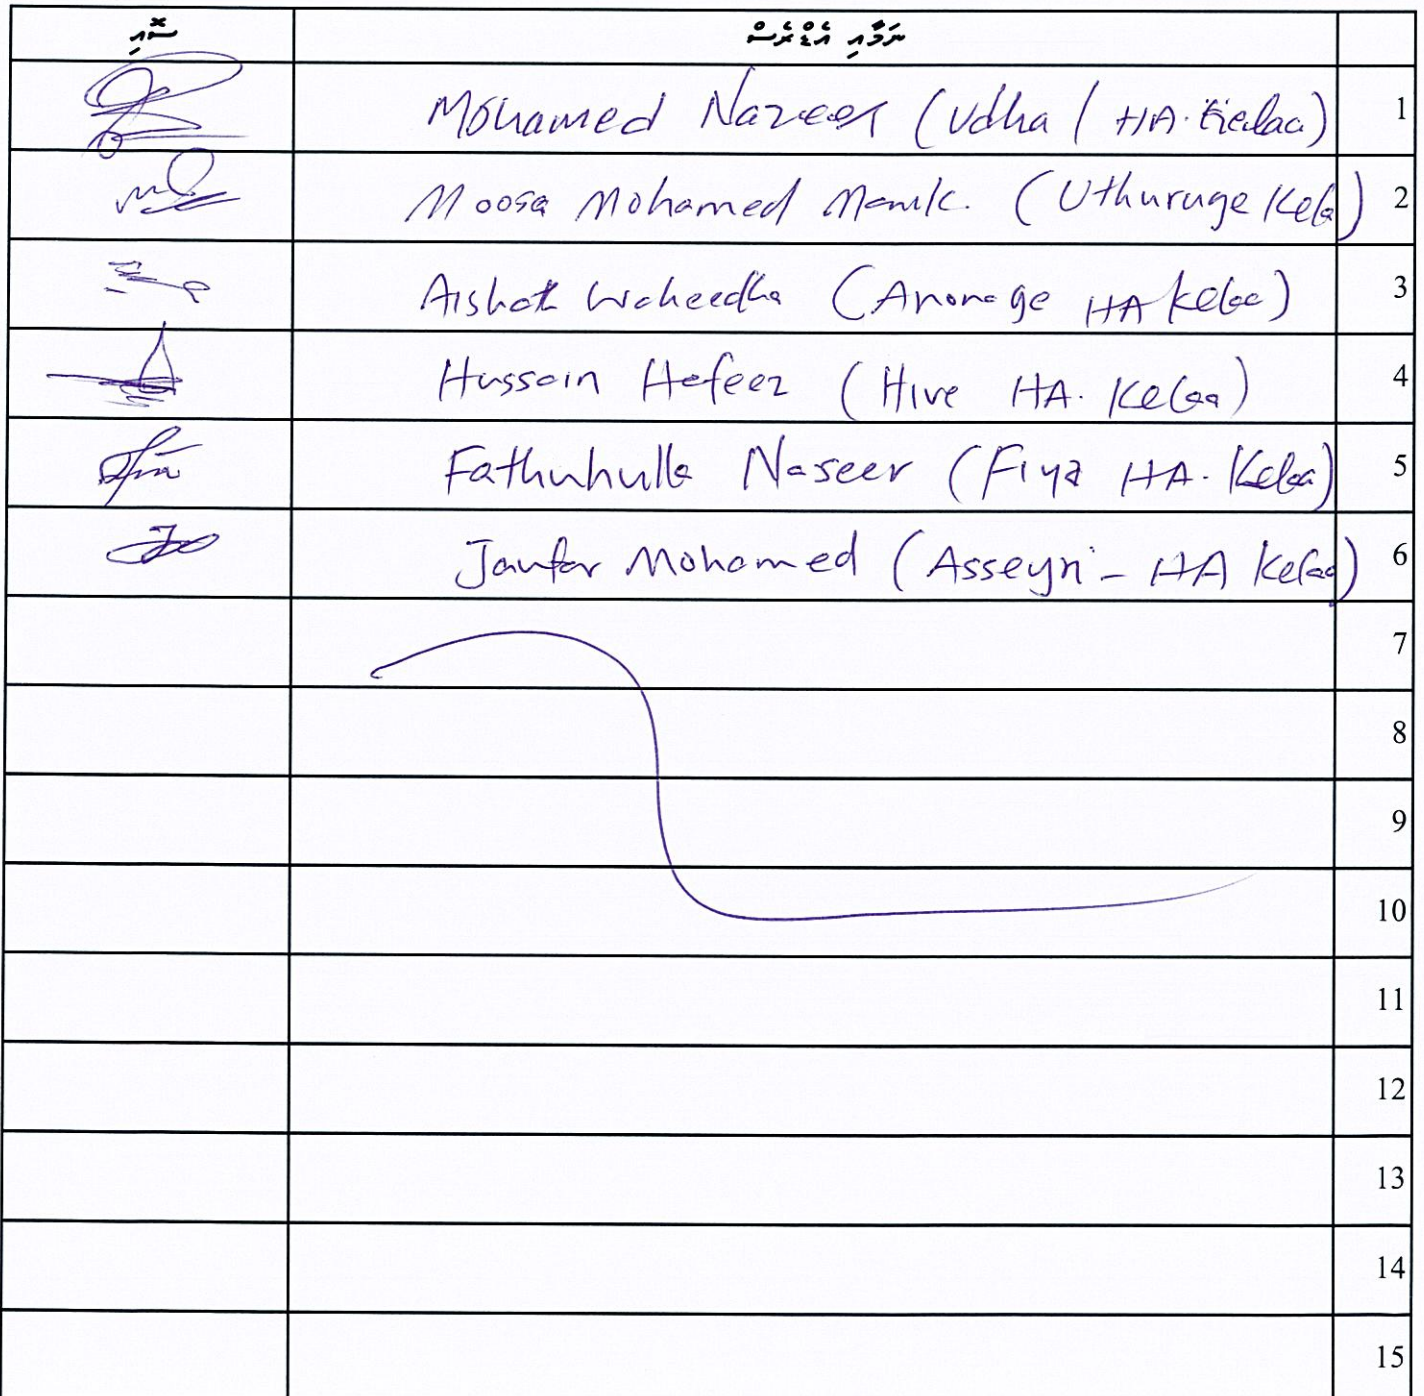 ނަމާއި އެޑްރެސް ސޮއި
1 Mohamed Nazeer (Udha / HA. Kelaa)
2 Moosa Mohamed Manik. (Uthuruge Kela)
3 Aishath Waheedha (Anonage HA Kelaa)
4 Hussain Hafeez (Hive HA. Kelaa)
5 Fathuhulla Naseer (Fiya HA. Kelaa)
6 Jaufar Mohamed (Asseyri - HA Kelaa)
7
8
9
10
11
12
13
14
15